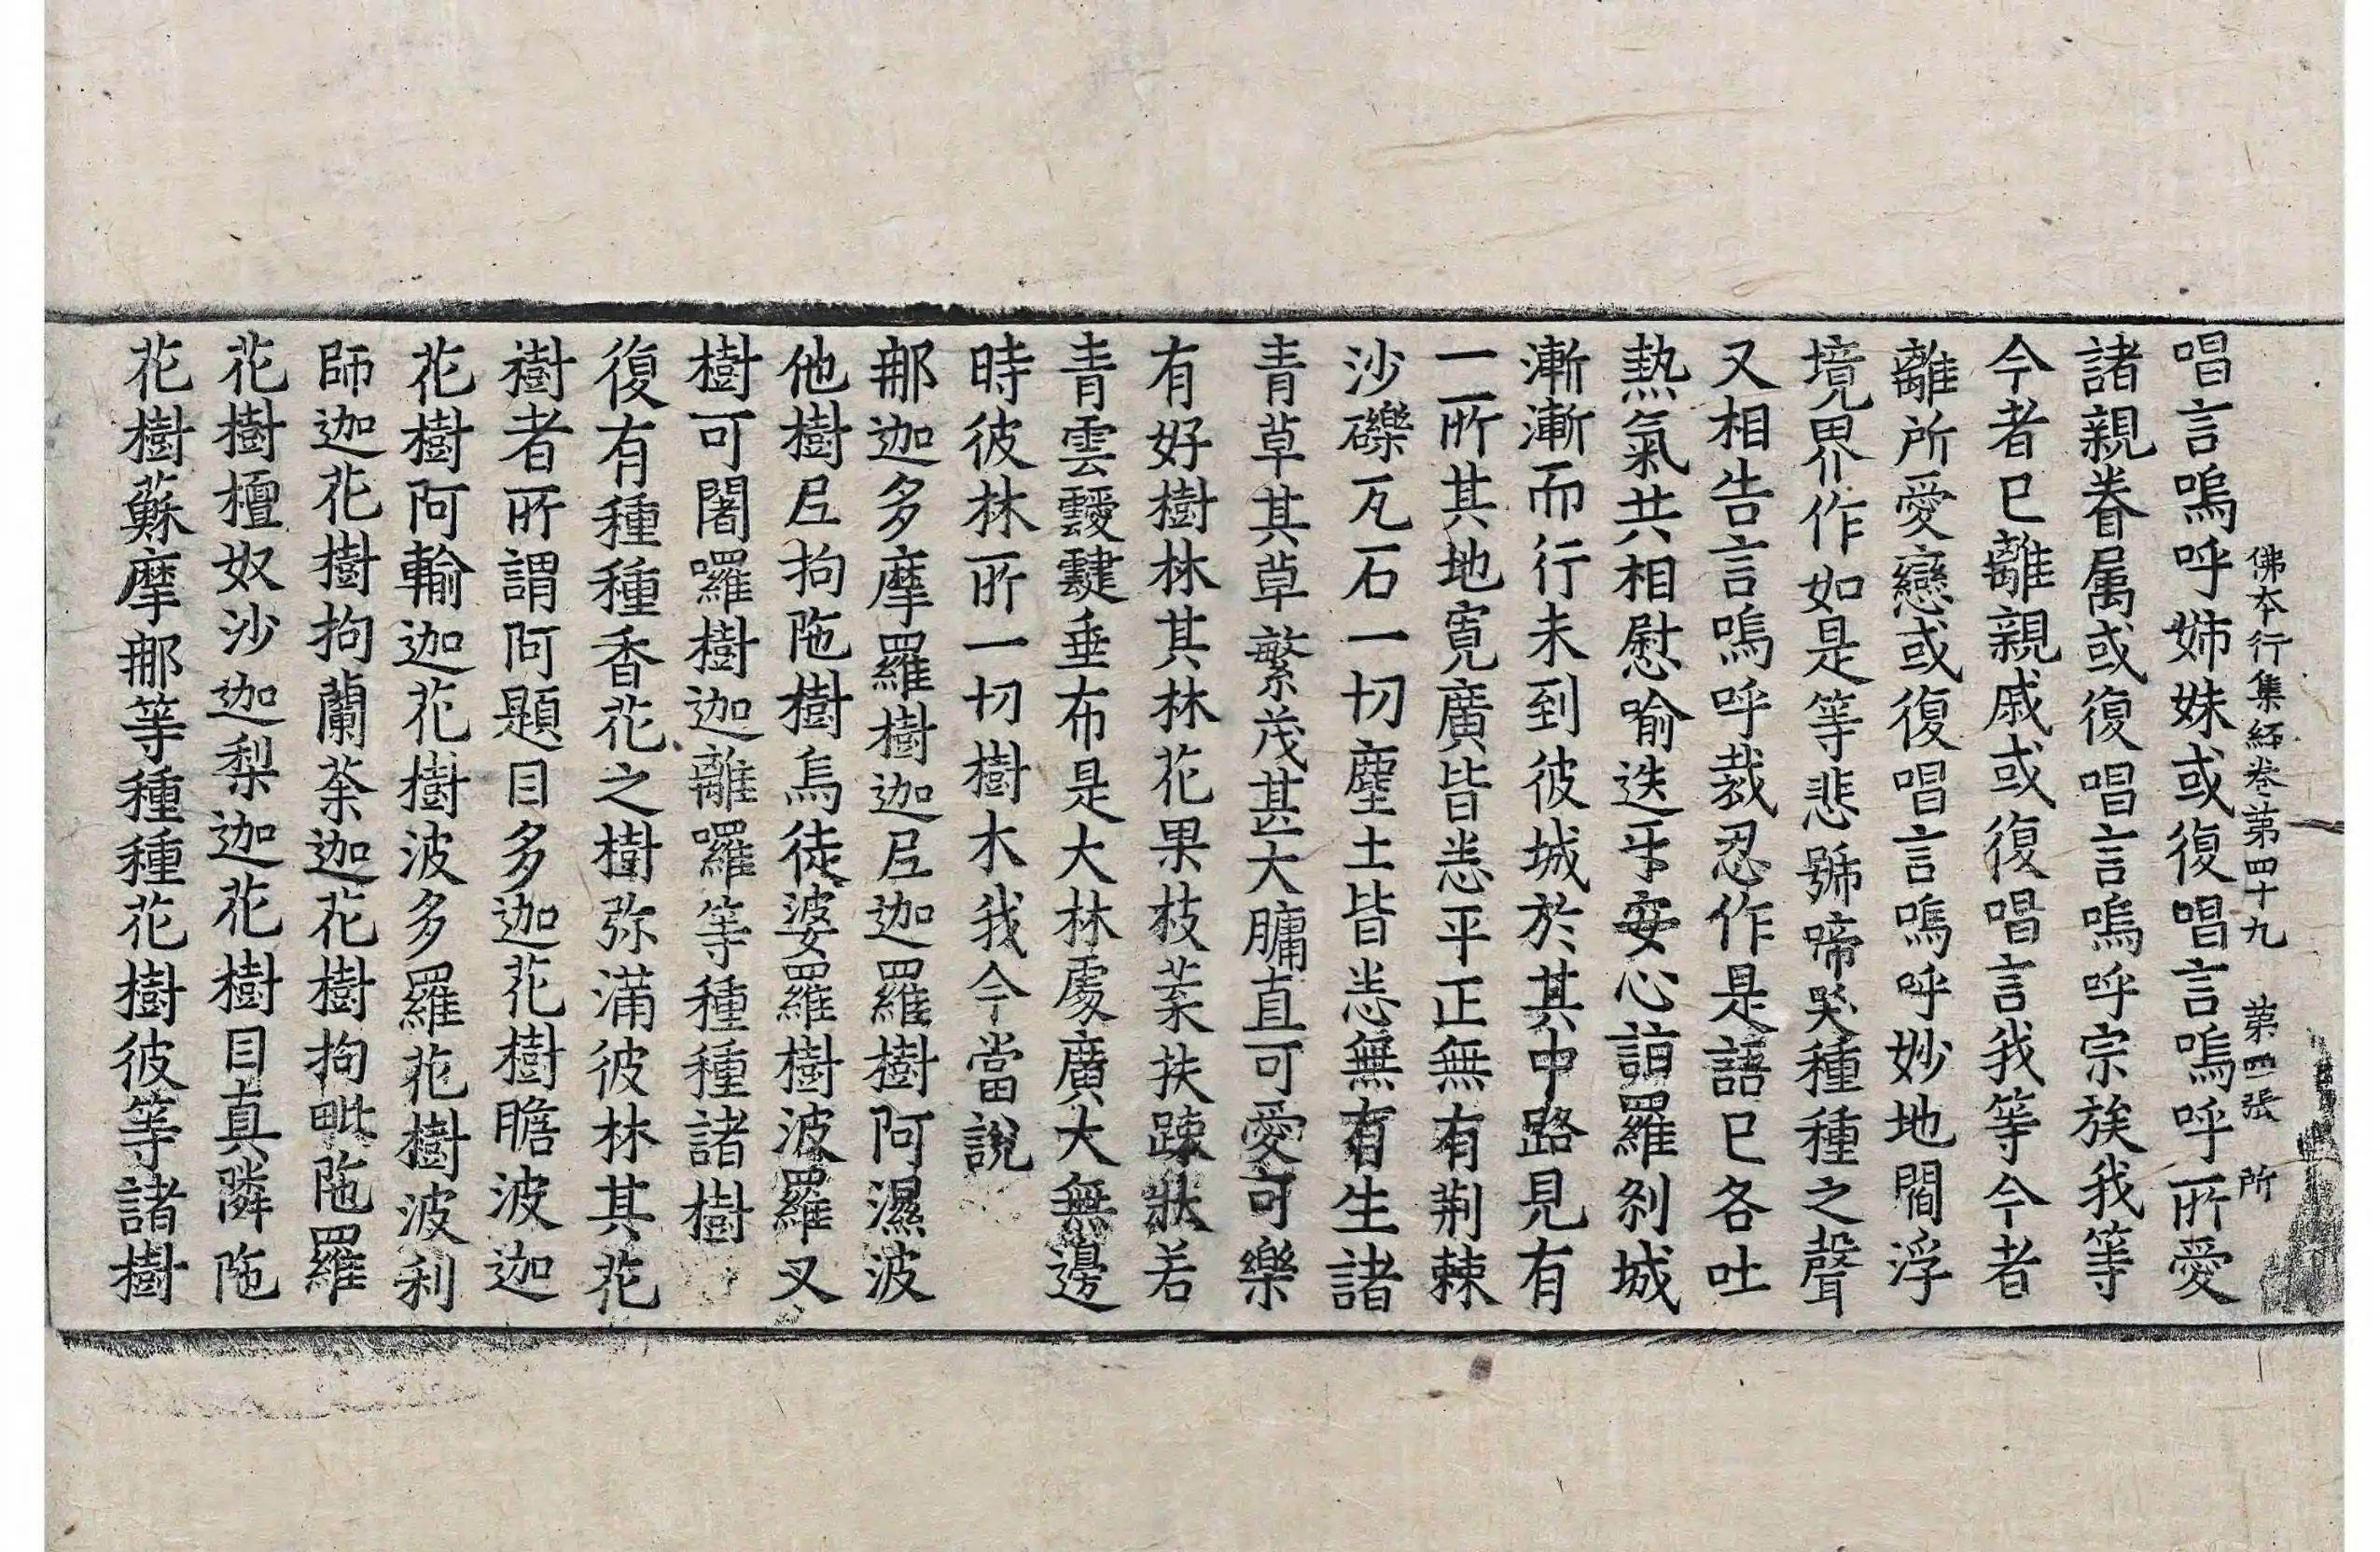 佛本行集經卷第四十九 第四張 所
唱言嗚呼姊妹或復唱言嗚呼所愛
諸親眷属或復唱言嗚呼宗族我等
今者已離親戚或復唱言我等今者
離所愛戀或復唱言嗚呼妙地閻浮
境界作如是等悲號啼哭種種之聲
又相告言嗚呼裁忍作是語已各吐
熱氣共相慰喻迭㸦安心詣羅刹城
漸漸而行未到彼城於其中路見有
一所其地寬廣皆悉平正無有荆棘
沙礫瓦石一切塵土皆悉無有生諸
青草其草繁茂甚大𦟛直可愛可樂
有好樹林其林花果枝葉扶踈狀若
青雲靉靆垂布是大林處廣大無邊
時彼林所一切樹木我今當說
那迦多摩羅樹迦尼迦羅樹阿濕波
他樹尼拘陁樹烏徒婆羅樹波羅叉
樹可闍囉樹迦離囉等種種諸樹
復有種種香花之樹弥滿彼林其花
樹者所謂阿題目多迦花樹瞻波迦
花樹阿輸迦花樹波多羅花樹波利
師迦花樹拘蘭荼迦花樹拘毗陁羅
花樹檀奴沙迦梨迦花樹目真隣陁
花樹蘇摩那等種種花樹彼等諸樹